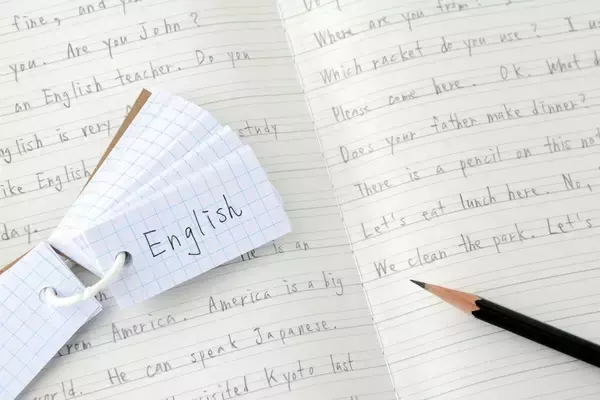 fine, and you?
you. Are you John?
an English teacher. Do you
English is very
study
like English
day.
English
he is an
from America. America is a big
world. He can speak Japanese.
visited Kyoto last
Where are you from?
Which racket do you use? I
Please come here. OK. What
Does your father make dinner?
There is a pencil on this
Let's eat lunch here. No,
We clean the park. Let's